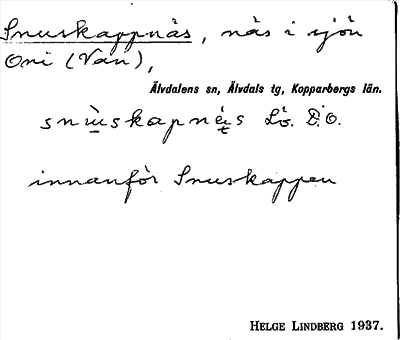 Snuskappnäs, näs i sjön
Oni (Van),
Älvdalens sn, Älvdals tg, Kopparbergs län.
snùskapnés Lö. D.O.
innanför Snuskappen
HELGE LINDBERG 1937.